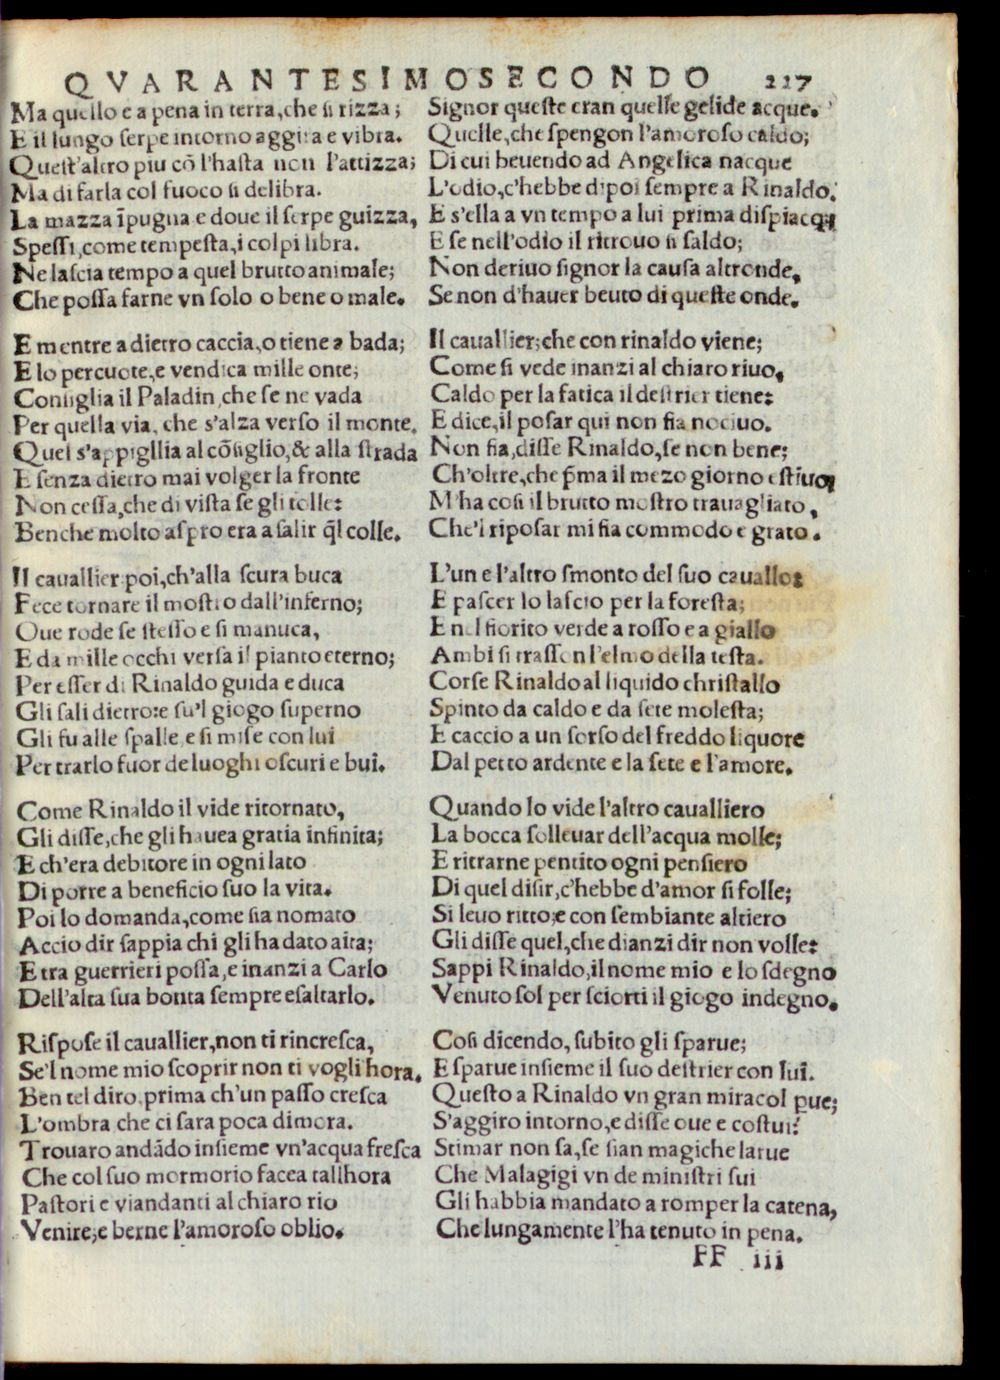 QVARANTESIMOSECONDO 227
Ma quello e a pena in terra, che si rizza;
E il lungo serpe intorno aggira e vibra.
Quest'altro piu cõ l'hasta non l'attizza;
Ma di farla col fuoco si delibra.
La mazza ĩpugna e doue il serpe guizza,
Spessi, come tempesta, i colpi libra.
Ne lascia tempo a quel brutto animale;
Che possa farne vn solo o bene o male.
E mentre a dietro caccia, o tiene a bada;
E lo percuote, e vendica mille onte;
Consiglia il Paladin, che se ne vada
Per quella via, che s'alza verso il monte.
Quel s'appigllia al cõsiglio, & alla strada
E senza dietro mai volger la fronte
Non cessa, che di vista se gli tolle:
Benche molto aspro era a salir q̃l colle.
Il cauallier poi, ch'alla scura buca
Fece tornare il mostro dall'inferno;
Oue rode se stesso e si manuca,
E da mille occhi versa il pianto eterno;
Per esser di Rinaldo guida e duca
Gli sali dietro: e su'l giogo superno
Gli fu alle spalle, e si mise con lui
Per trarlo fuor de luoghi oscuri e bui.
Come Rinaldo il vide ritornato,
Gli disse, che gli hauea gratia infinita;
E ch'era debitore in ogni lato
Di porre a beneficio suo la vita.
Poi lo domanda, come sia nomato
Accio dir sappia chi gli ha dato aita;
E tra guerrieri possa, e inanzi a Carlo
Dell'alta sua bonta sempre esaltarlo.
Rispose il cauallier, non ti rincresca,
Se'l nome mio scoprir non ti vogli hora.
Ben tel diro, prima ch'un passo cresca
L'ombra che ci sara poca dimora.
Trouaro andãdo insieme vn'acqua fresca
Che col suo mormorio facea tallhora
Pastori e viandanti al chiaro rio
Venire; e berne l'amoroso oblio.
Signor queste eran quelle gelide acque.
Quelle, che spengon l'amoroso caldo;
Di cui beuendo ad Angelica nacque
L'odio, c'hebbe dipoi sempre a Rinaldo.
E s'ella a vn tempo a lui prima dispiacq;
E se nell'odio il ritrouo si saldo;
Non deriuo signor la causa altronde,
Se non d'hauer beuto di queste onde.
Il cauallier; che con rinaldo viene;
Come si vede inanzi al chiaro riuo,
Caldo per la fatica il destrier tiene:
E dice, il posar qui non fia nociuo.
Non fia, disse Rinaldo, se non bene;
Ch'oltre, che p̃ma il mezo giorno estiuo,
M'ha cosi il brutto mostro trauagliato,
Che'l riposar mi fia commodo e grato.
L'un e l'altro smonto del suo cauallo:
E pascer lo lascio per la foresta;
E nel fiorito verde a rosso e a giallo
Ambi si trasson l'elmo della testa.
Corse Rinaldo al liquido christallo
Spinto da caldo e da sete molesta;
E caccio a un sorso del freddo liquore
Dal petto ardente e la sete e l'amore.
Quando lo vide l'altro caualliero
La bocca solleuar dell'acqua molle;
E ritrarne pentito ogni pensiero
Di quel disir, c'hebbe d'amor si folle;
Si leuo ritto: e con sembiante altiero
Gli disse quel, che dianzi dir non volse:
Sappi Rinaldo, il nome mio e lo sdegno
Venuto sol per sciorti il giogo indegno.
Cosi dicendo, subito gli sparue;
E sparue insieme il suo destrier con lui.
Questo a Rinaldo vn gran miracol pue;
S'aggiro intorno, e disse oue e costui?
Stimar non sa, se sian magiche larue
Che Malagigi vn de ministri sui
Gli habbia mandato a romper la catena,
Che lungamente l'ha tenuto in pena.
FF iii